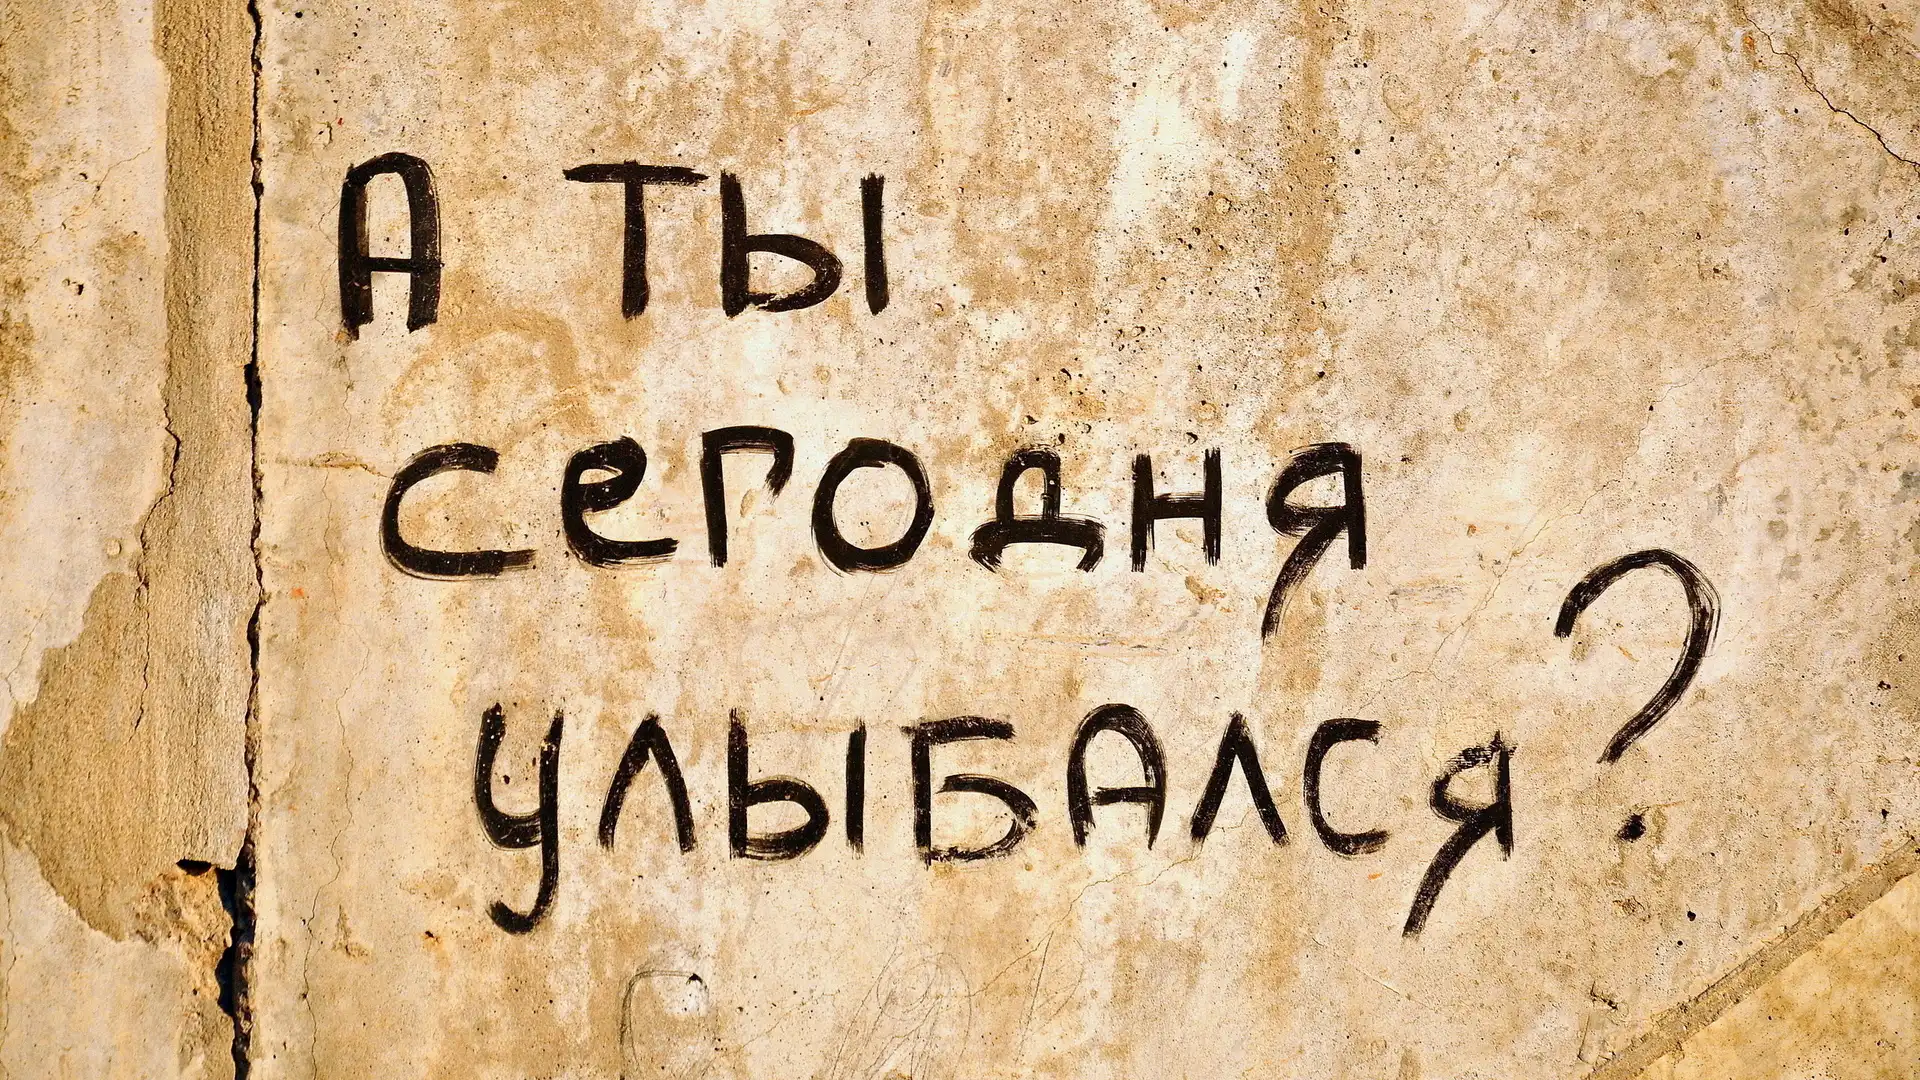 А ТЫ
сегодня
улыбался?